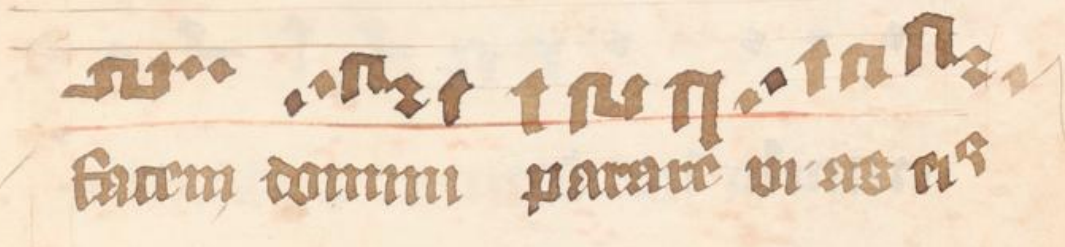 faciem domini parare vi as eiꝰ